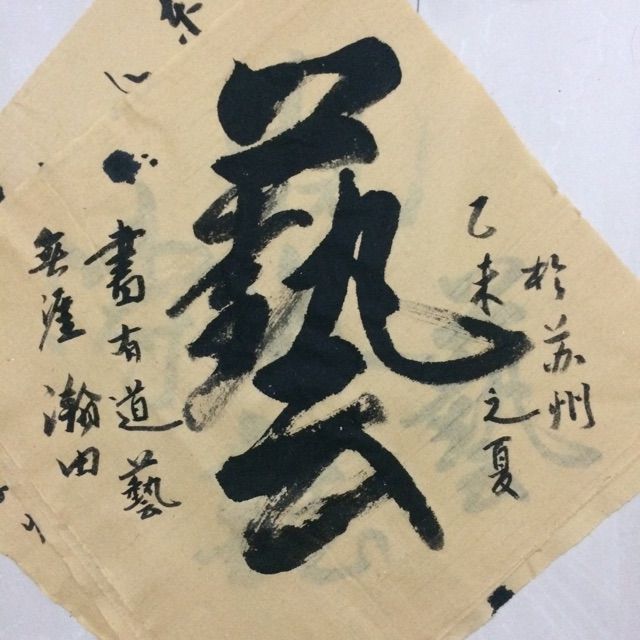 藝
書有道藝
無涯瀚田
乙未之夏
於苏州